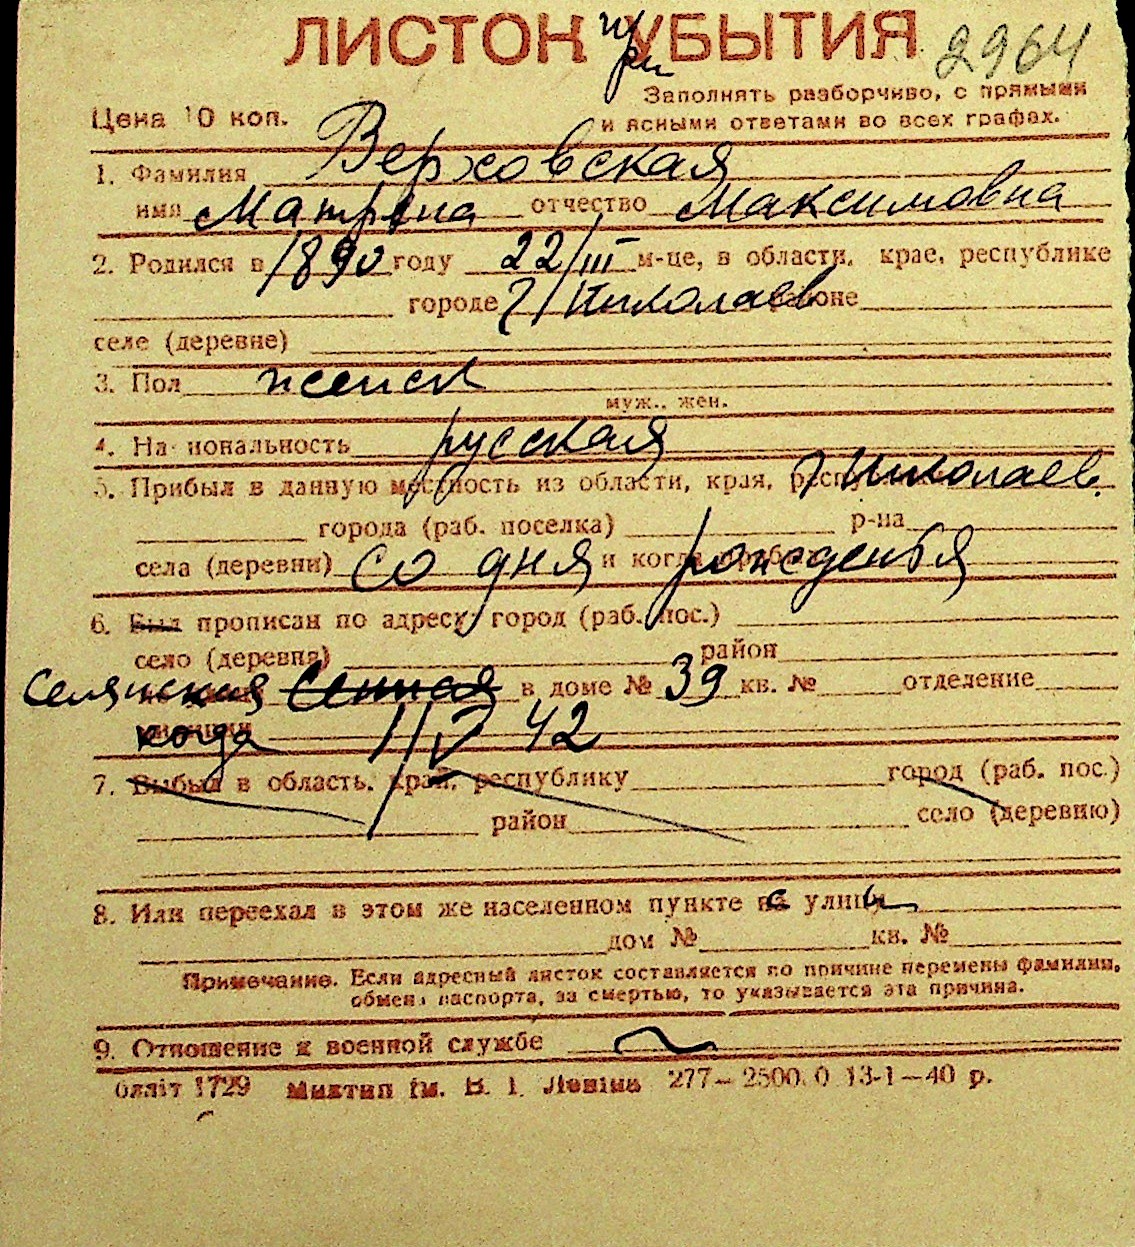 ЛИСТОК УБЫТИЯ 2964
при
Заполнять разборчиво, с прямыми
Цена 10 коп.
и ясными ответами во всех графах.
1. Фамилия Верховская
имя Матрена отчество Максимовна
2. Родился в 1890 году 22/III м-це, в области, крае, республике
городе г/Николаев районе
селе (деревне)
3. Пол женск
муж., жен.
4. На иональность русская
5. Прибыл в данную местность из области, края, республики г Николаев.
города (раб. поселка) р-на
села (деревни) со дня и когда рожденья
6. Был прописан по адресу: город (раб. пос.)
село (деревня) район
Селянская Сенная в доме № 39 кв. № отделение
милиции когда 1/V 42
7. Выбыл в область, край, республику город (раб. пос.)
район село (деревню)
8. Или переехал в этом же населенном пункте с улицы
дом № кв. №
Примечание. Если адресный листок составляется по причине перемены фамилии,
обмена паспорта, за смертью, то указывается эта причина.
9. Отношение к военной службе
блліт 1729 Миктип ім. В. І. Леніна 277—2500.0 13-1—40 р.